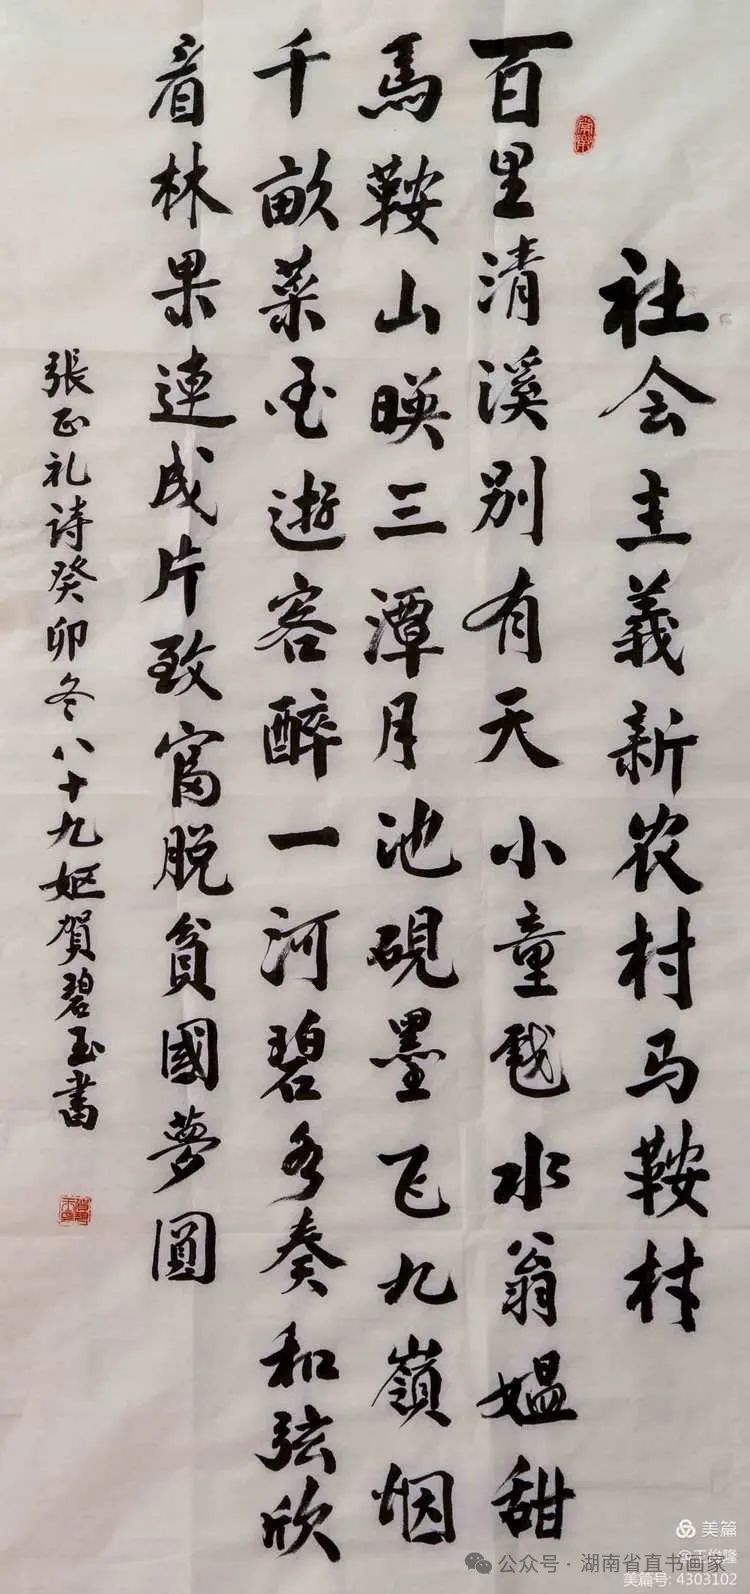 社会主義新农村马鞍村
百里清溪别有天小童戲水翁媪甜
馬鞍山暎三潭月池硯墨飞九嶺烟
千畝菜花逰客醉一河碧水奏和弦欣
看林果連成片致富脱貧國夢圓
張正礼詩癸卯冬八十九妪賀碧玉書
美篇
公众号·湖南省直书画家
美篇号: 4303102